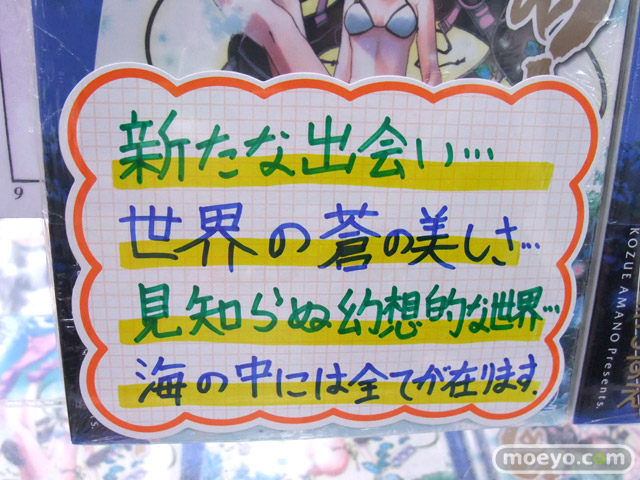 新たな出会い…
世界の蒼の美しさ…
見知らぬ幻想的な世界…
海の中には全てが在ります.
9
KOZUE AMANO Presents.
s.
moeyo.com